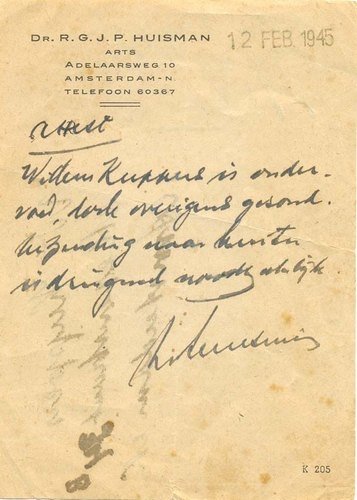 DR. R. G. J. P. HUISMAN
ARTS
ADELAARSWEG 10
AMSTERDAM-N.
TELEFOON 60367
12 FEB. 1945
Attest
Willem Kuppers is onder-
voed, doch overigens gezond.
Uitzending naar buiten
is dringend noodzakelijk
K 205